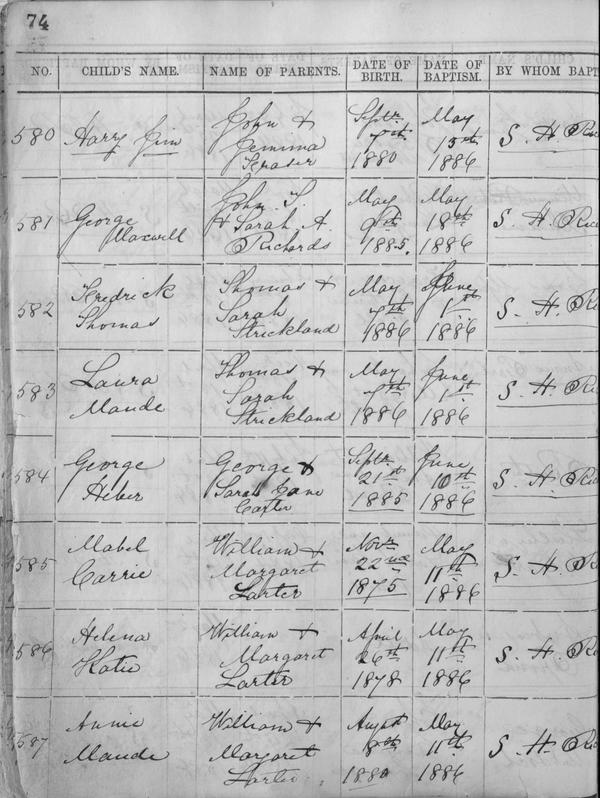 74
NO. CHILD'S NAME. NAME OF PARENTS. DATE OF BIRTH. DATE OF BAPTISM. BY WHOM BAPT
580 Harry Jim John & Jemima Fraser Septr 7th 1880 May 15th 1886 S. H. Ric
581 George Maxwell John S. & Sarah A. Richards May 9th 1885. May 18th 1886 S. H. Ric
582 Fredrick Thomas Thomas & Sarah Strickland May 7th 1886 June 1st 1886 S. H. Ri
583 Laura Maude Thomas & Sarah Strickland May 7th 1886 June 1st 1886 S. H. Ric
584 George Heber George & Sarah Jane Carter Septr 21st 1885 June 10th 1886 S. H. Ri
585 Mabel Carrie William & Margaret Larter Novr 22nd 1875 May 11th 1886 S. H. Ri
586 Helena Katie William & Margaret Larter April 26th 1878 May 11th 1886 S. H. Ri
587 Annie Maude William & Margaret Larter August 1880 May 11th 1886 S. H. Ri